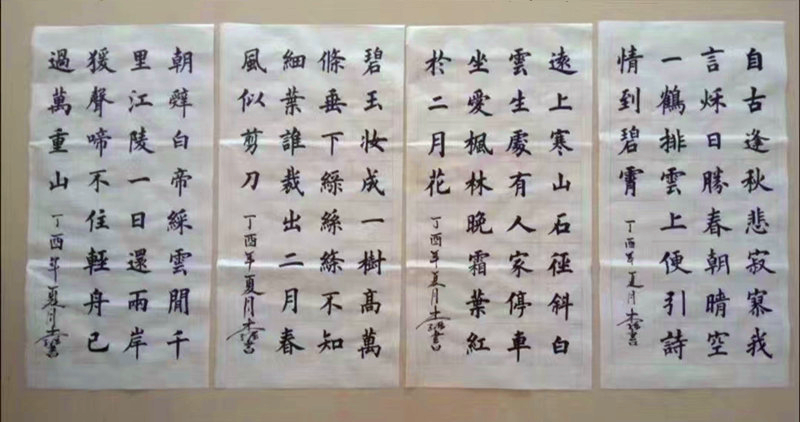 自古逢秋悲寂寥我
言秌日勝春朝晴空
一鶴排雲上便引詩
情到碧霄 丁酉年夏月 書
遠上寒山石徑斜白
雲生處有人家停車
坐愛楓林晚霜葉紅
於二月花 丁酉年夏月 書
碧玉妝成一樹高萬
條垂下綠絲絛不知
細葉誰裁出二月春
風似剪刀 丁酉年夏月 書
朝辤白帝綵雲間千
里江陵一日還兩岸
猨聲啼不住輕舟已
過萬重山 丁酉年夏月 書